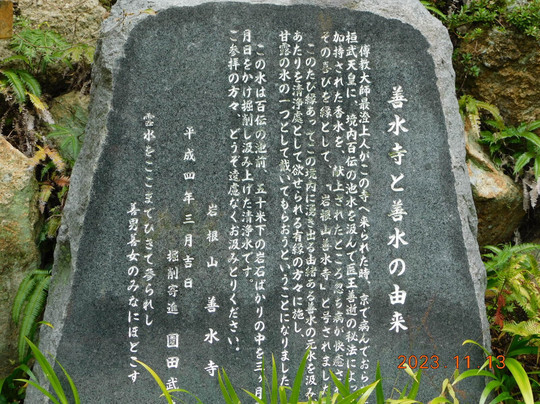 善水寺と善水の由来
傳教大師最澄上人がこの寺へ来られた時、京で病んでおら
桓武天皇に、境内百伝の池水を汲んで医王善逝の秘法によっ
加持された香水を、献上されたところ忽ち病が快癒さ
その喜びを縁として、「岩根山善水寺」と号されまし
このたび縁あってこの境内に湧き出る由緒ある善水の元水を汲み
あたりを清浄處として欲せられる有縁の方々に施し
甘露の水の一つとして戴いてもらおうということになりました
この水は百伝の池前、五十米下の岩石ばかりの中を三ヶ月
月日をかけ掘削し汲み上げた清浄水です。
ご参拝の方々、どうぞ遠慮なくお汲みとりください。
岩根山 善水寺
平成四年三月吉日
掘削寄進 園田武
霊水をここまでひきて参られし
善男善女のみなにほどこす
2023.11.13